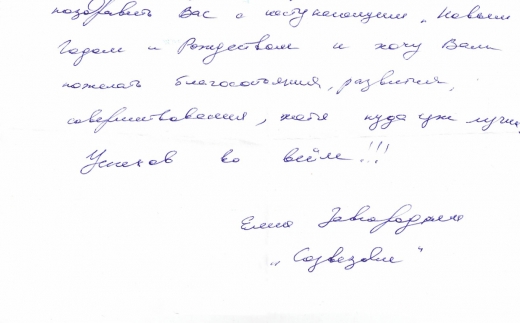 поздравить Вас с наступающим Новым
Годом и Рождеством и хочу Вам
пожелать благосостояния, развития,
совершенствования, хотя куда уж лучше
Успехов во всём!!!
Елена
„Созвездие"